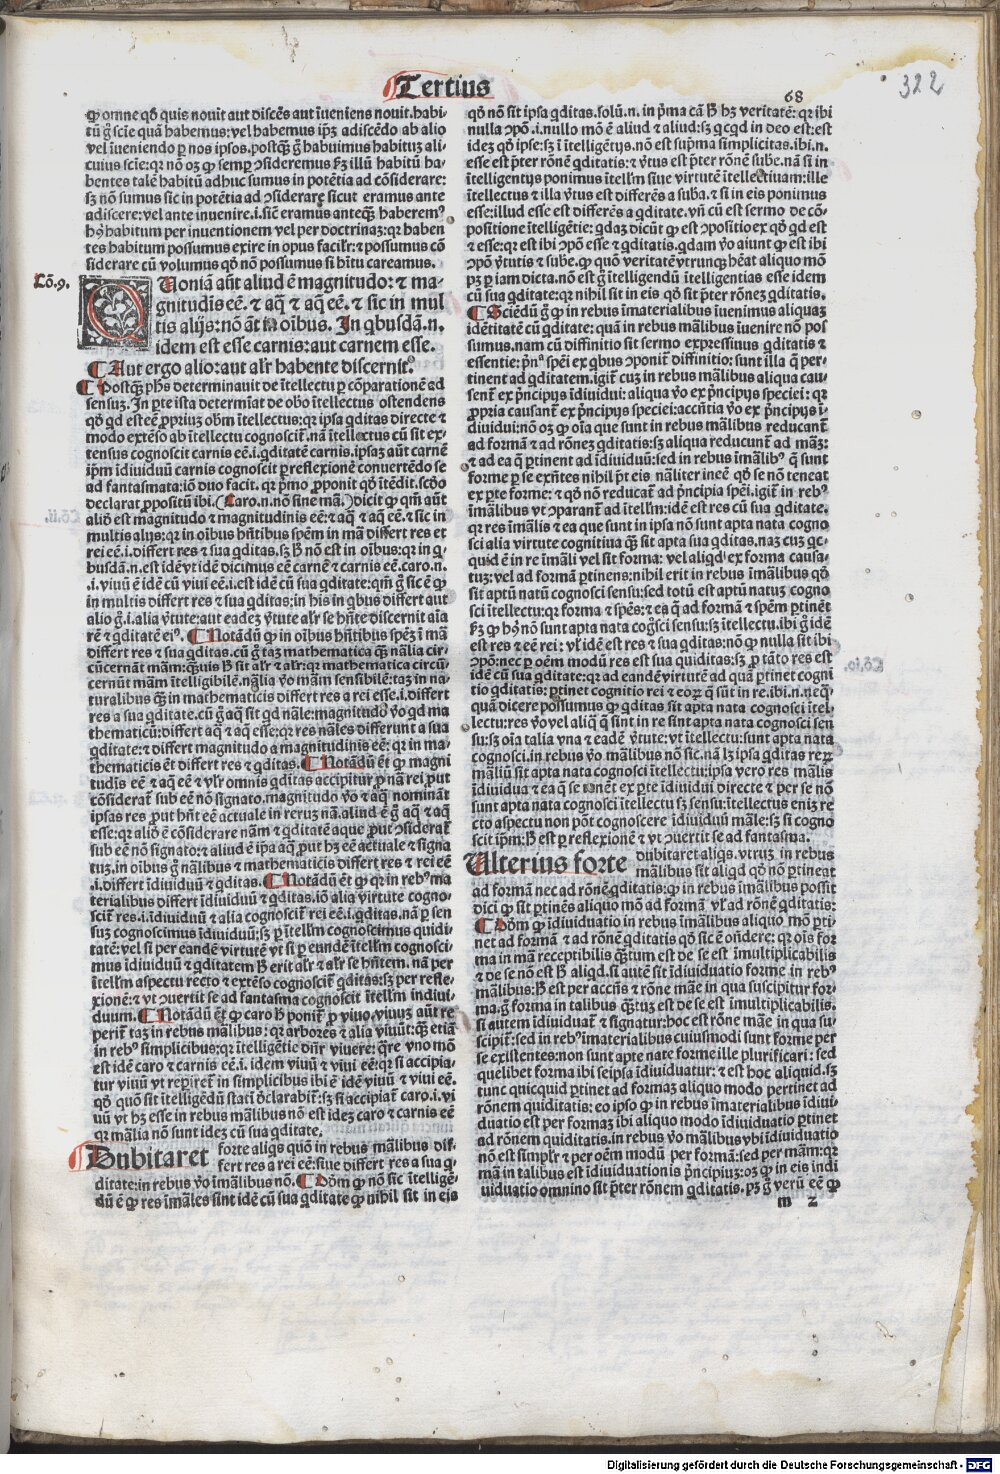 Tertius
68
322
ꝙ omne qđ quis nouit aut discēs aut īueniens nouit. habi-
tū ḡ scīe quā habemus: vel habemus ip̄ꝫ adiscēdo ab alio
vel īueniendo ꝑ nos ipsos. postqꝫ̄ ḡ habuimus habituꝫ ali
cuius scīe: qꝛ nō oꝫ ꝙ semꝑ ↄsideremus ẜꝫ illū habitū ha-
bentes talē habitū adhuc sumus in potētia ad cōsiderare:
sꝫ nō sumus sic in potētia ad ↄsiderare sicut eramus ante
adiscere: vel ante inuenire. i. sic̄ eramus anteqꝫ̄ haberemꝰ
hꝰ habitum per inuentionem vel per doctrinaꝫ: qꝛ haben
tes habitum possumus exire in opus facilr̄: ⁊ possumus cō
siderare cū volumus qđ nō possumus si hītu careamus.
Cō. 9.
Quoniā aūt aliud ē magnitudo: ⁊ ma-
gnitudis eē. ⁊ aq̄ ⁊ aq̄ eē. ⁊ sic in mul
tis alijs: nō āt in oībus. In qbusdā. n.
idem est esse carnis: aut carnem esse.
Aut ergo alio: aut alr̄ habente discernit.
Postqꝫ̄ ph̄s determinauit de ītellectu ꝑ cōparationē ad
sensuꝫ. In ꝑte ista determīat de obo ītellectus ostendens
qđ qd est eē ꝓprium obm̄ ītellectus: qꝛ ipsa qditas directe ⁊
modo extēso ab ītellectu cognoscit̄. nā ītellectus cū sit ex-
tensus cognoscit carnis eē. i. qditatē carnis. ipsaꝫ aūt carnē
ip̄m īdiuiduū carnis cognoscit ꝑ reflexionē conuertēdo se
ad fantasmata: iō duo facit. qꝛ prīo ꝓponit qđ ītēdit. scđo
declarat ꝓpositū ibi. (Caro. n. nō sine mā.) dicit ꝙ qm̄ aūt
aliđ est magnitudo ⁊ magnitudinis eē: ⁊ aq̄ ⁊ aq̄ eē. ⁊ sic in
multis alijs: qꝛ in oībus hn̄tibus spēm in mā differt res et
rei eē. i. differt res ⁊ sua qditas. sꝫ ħ nō est in oībus: qꝛ in q-
busdā. n. est idē vt idē dicimus eē carnē ⁊ carnis eē. caro. n.
. i. viuū ē idē cū viui eē. i. est idē cū sua qditate: qm̄ ḡ sic ē ꝙ
in multis differt res ⁊ sua qditas: in his in qbus differt aut
alio ḡ. i. alia v̄tute: aut eadeꝫ v̄tute alr̄ se hn̄te discernit aīa
rē ⁊ qditatē eiꝰ. Notādū ꝙ in oībus hn̄tibus spēꝫ ī mā
differt res ⁊ sua qditas. cū ḡ taꝫ mathematica qꝫ̄ nālia cir-
cūcernāt mām: qꝫ̄uis ħ sit alr̄ ⁊ alr̄: qꝛ mathematica circū-
cernūt mām ītelligibilē. nāṽo mām sensibilē: taꝫ in na-
turalibus qꝫ̄ in mathematicis differt res a rei esse. i. differt
res a sua qditate. cū ḡ aq̄ sit qd nāle: magnitudo ṽo qd ma
thematicū: differt aq̄ ⁊ aq̄ esse: qꝛ res nāles differunt a sua
qditate: ⁊ differt magnitudo a magnitudinis eē: qꝛ in ma-
thematicis ēt differt res ⁊ qditas. Notādū ēt ꝙ magni
tudis eē ⁊ aq̄ eē ⁊ vlr̄ omnis qditas accipitur ꝓ nā rei ꝓut
cōsiderat̄ sub eē nō signato. magnitudo ṽo ⁊ aq̄ nominant
ipsas res ꝓut hn̄t eē actuale in reruꝫ nā. aliud ē ḡ aq̄ ⁊ aq̄
esse: qꝛ aliđ ē cōsiderare nām ⁊ qditatē aque ꝓut ↄsiderat̄
sub eē nō signato: ⁊ aliud ē īpa aq̄ ꝓut hꝫ eē actuale ⁊ signa
tuꝫ. in oībus ḡ nālibus ⁊ mathematicis differt res ⁊ rei eē
. i. differt īdiuiduū ⁊ qditas. Notādū ēt ꝙ qꝛ in rebꝰ ma
terialibus differt īdiuiduū ⁊ qditas. iō alia virtute cogno-
scit̄ res. i. īdiuiduū ⁊ alia cognoscit̄ rei eē. i. qditas. nā ꝑ sen
suꝫ cognoscimus īdiuiduū: sꝫ ꝑ ītellm̄ cognoscimus quidi-
tatē: vel si per eandē virtutē vt si ꝑ eundē ītellm̄ cognosci-
mus īdiuiduū ⁊ qditatem ħ erit alr̄ ⁊ alr̄ se hn̄tem. nam per
ītellm̄ aspectu recto ⁊ extēso cognoscit̄ qditas: sꝫ per refle-
xionē: ⁊ vt ↄuertit se ad fantasma cognoscit ītellm̄ indiui-
duum. Notādū ēt ꝙ caro ħ ponit̄ ꝓ viuo. viuuꝫ aūt re
perit̄ taꝫ in rebus mālibus: qꝛ arbores ⁊ alia viuūt: qꝫ̄ etiā
in rebꝰ simplicibus: qꝛ ītelligētie dn̄r viuere: q̄re vno mō
est idē caro ⁊ carnis eē. i. idem viuū ⁊ viui eē: qꝛ si accipia-
tur viuū vt reperit̄ in simplicibus ibi ē idē viuū ⁊ viui eē.
qđ quō sit ītelligēdū stati đclarabit̄: sꝫ si accipiat̄ caro. i. vi
uū vt hꝫ esse in rebus mālibus nō est ideꝫ caro ⁊ carnis eē
qꝛ mālia nō sunt ideꝫ cū sua qditate.
Dubitaret forte aliqs quō in rebus mālibus dif-
fert res a rei eē: siue differt res a sua q-
ditate: in rebus ṽo īmālibus nō. Dōm ꝙ nō sic ītelligē-
dū ē ꝙ res īmāles sint idē cū sua qditate ꝙ nihil sit in eis
qđ nō sit ipsa qditas. solū. n. in pr̄ma cā ħ hꝫ veritatē: qꝛ ibi
nulla ↄpō. i. nullo mō ē aliud ⁊ aliud: sꝫ qcqd in deo est: est
ideꝫ qđ ipse: sꝫ ī ītelligētijs. nō est supr̄ma simplicitas. ibi. n.
esse est p̄ter rōnē qditatis: ⁊ v̄tus est p̄ter rōnē sube. nā si in
ītelligentijs ponimus ītellm̄ siue virtutē ītellectiuam: ille
ītellectus ⁊ illa v̄tus est differēs a suba. ⁊ si in eis ponimus
esse: illud esse est differēs a qditate. vn̄ cū est sermo de cō-
positione ītelligētie: qdaꝫ dicūt ꝙ est ↄpositio ex qđ qd est
⁊ esse: qꝛ est ibi ↄpō esse ⁊ qditatis. qdam ṽo aiunt ꝙ est ibi
ↄpō v̄tutis ⁊ sube. ꝙ quō veritatē vtrunqꝫ hēat aliquo mō
pꝫ ꝑ iam dicta. nō est ḡ ītelligendū ītelligentias esse idem
cū sua qditate: qꝛ nihil sit in eis qđ sit p̄ter rōneꝫ qditatis.
Sciēdū ḡ ꝙ in rebus īmaterialibus īuenimus aliquaꝫ
idētitatē cū qditate: quā in rebus mālibus īuenire nō pos
sumus. nam cū diffinitio sit sermo expressiuus qditatis ⁊
essentie: p̄nᵃ spēi ex qbus ↄponit̄ diffinitio: sunt illa q̄ per-
tinent ad qditatem. igit̄ cuꝫ in rebus mālibus aliqua cau
sent̄ ex p̄ncipijs īdiuidui: aliqua ṽo ex p̄ncipijs speciei: qꝛ
ꝓpria causant̄ ex p̄ncipijs speciei: accn̄tia ṽo ex p̄ncipijs ī-
diuidui: nō oꝫ ꝙ oīa que sunt in rebus mālibus reducant̄
ad formā ⁊ ad rōneꝫ qditatis: sꝫ aliqua reducunt̄ ad māꝫ:
⁊ ad ea q̄ ꝑtinent ad īdiuiduū: sed in rebus īmālibꝰ q̄ sunt
forme ꝑ se exn̄tes nihil pōt eis nāliter inēē qđ se nō teneat
ex ꝑte forme: ⁊ qđ nō reducat̄ ad p̄ncipia spēi. igit̄ in rebꝰ
īmālibus vt ↄparant̄ ad ītellm̄: idē est res cū sua qditate.
qꝛ res īmālis ⁊ ea que sunt in ipsa nō sunt apta nata cogno
sci alia virtute cognitiua qꝫ̄ sit apta sua qditas. naꝫ cuꝫ qc-
quid ē in re īmāli vel sit forma: vel aliqd ex forma causa-
tuꝫ: vel ad formā ꝑtinens: nihil erit in rebus īmālibus qđ
sit aptū natū cognosci sensu: sed totū est aptū natuꝫ cogno
sci ītellectu: qꝛ forma ⁊ spēs: ⁊ ea q̄ ad formā ⁊ spēm ꝑtinēt
ẜꝫ ꝙ hꝰ nō sunt apta nata cog̃sci sensu: sꝫ ītellectu. ibi ḡ idē
est res ⁊ eē rei: vl̄ idē est res ⁊ sua qditas: nō ꝙ nulla sit ibi
ↄpō: nec ꝑ oēm modū res est sua quiditas: sꝫ ꝓ tāto res est
idē cū sua qditate: qꝛ ad eandē virtutē ad quā ꝑtinet cogni
tio qditatis: ꝑtinet cognitio rei ⁊ eoꝝ q̄ sūt in re. ibi. n. neq-
quā dicere possumus ꝙ qditas sit apta nata cognosci ītel-
lectu: res ṽo vel aliq̄ q̄ sunt in re sint apta nata cognosci sen
su: sꝫ oīa talia vna ⁊ eadē v̄tute: vt ītellectu: sunt apta nata
cognosci. in rebus ṽo mālibus nō sic. nā lꝫ ipsa qditas reꝝ
māliū sit apta nata cognosci ītellectu: ipsa vero res mālis
īdiuidua ⁊ ea q̄ se tenēt ex ꝑte īdiuidui directe ⁊ per se nō
sunt apta nata cognosci ītellectu sꝫ sensu: ītellectus eniꝫ re
cto aspectu non pōt cognoscere īdiuiduū māle: sꝫ si cogno
scit ip̄m: ħ est ꝑ reflexionē ⁊ vt ↄuertit se ad fantasma.
Ulterius forte dubitaret aliqs. vtruꝫ in rebus
mālibus sit aliqd qđ nō ꝑtineat
ad formam nec ad rōnē qditatis: ꝙ in rebus īmālibus possit
dici ꝙ sit ꝑtinēs aliquo mō ad formā vl̄ ad rōnē qditatis:
Dōm ꝙ īdiuiduatio in rebus īmālibus aliquo mō ꝑti-
net ad formā ⁊ ad rōnē qditatis qđ sic ē on̄dere: qꝛ oīs for
ma in mā receptibilis qꝫ̄tum est de se est īmultiplicabilis
⁊ de se nō est ħ aliqd. si autē sit īdiuiduatio forme in rebꝰ
mālibus: ħ est per accn̄s ⁊ rōne māe in qua suscipitur for-
ma. ḡ forma in talibus qꝫ̄tuꝫ est de se est īmultiplicabilis.
si autem īdiuiduat̄ ⁊ signatur: hoc est rōne māe in qua su-
scipit̄: sed in rebꝰ īmaterialibus cuiusmodi sunt forme per
se existentes: non sunt apte nate forme ille plurificari: sed
quelibet forma ibi seipsa īdiuiduatur: ⁊ est hoc aliquid. sꝫ
tunc quicquid ꝑtinet ad formaꝫ aliquo modo pertinet ad
rōnem quiditatis: eo ipso ꝙ in rebus īmaterialibus īdiui
duatio est per formaꝫ ibi aliquo modo īdiuiduatio ꝑtinet
ad rōnem quiditatis. in rebus ṽo mālibus vbi īdiuiduatio
nō est simplr̄ ⁊ per oēm modū per formā: sed per mām: qꝛ
mām in talibus est īdiuiduationis p̄ncipiuꝫ: oꝫ ꝙ in eis indi
uiduatio omnino sit p̄ter rōnem qditatis. pꝫ ḡ verū eē ꝙ
m 2
Digitalisierung gefördert durch die Deutsche Forschungsgemeinschaft - DFG